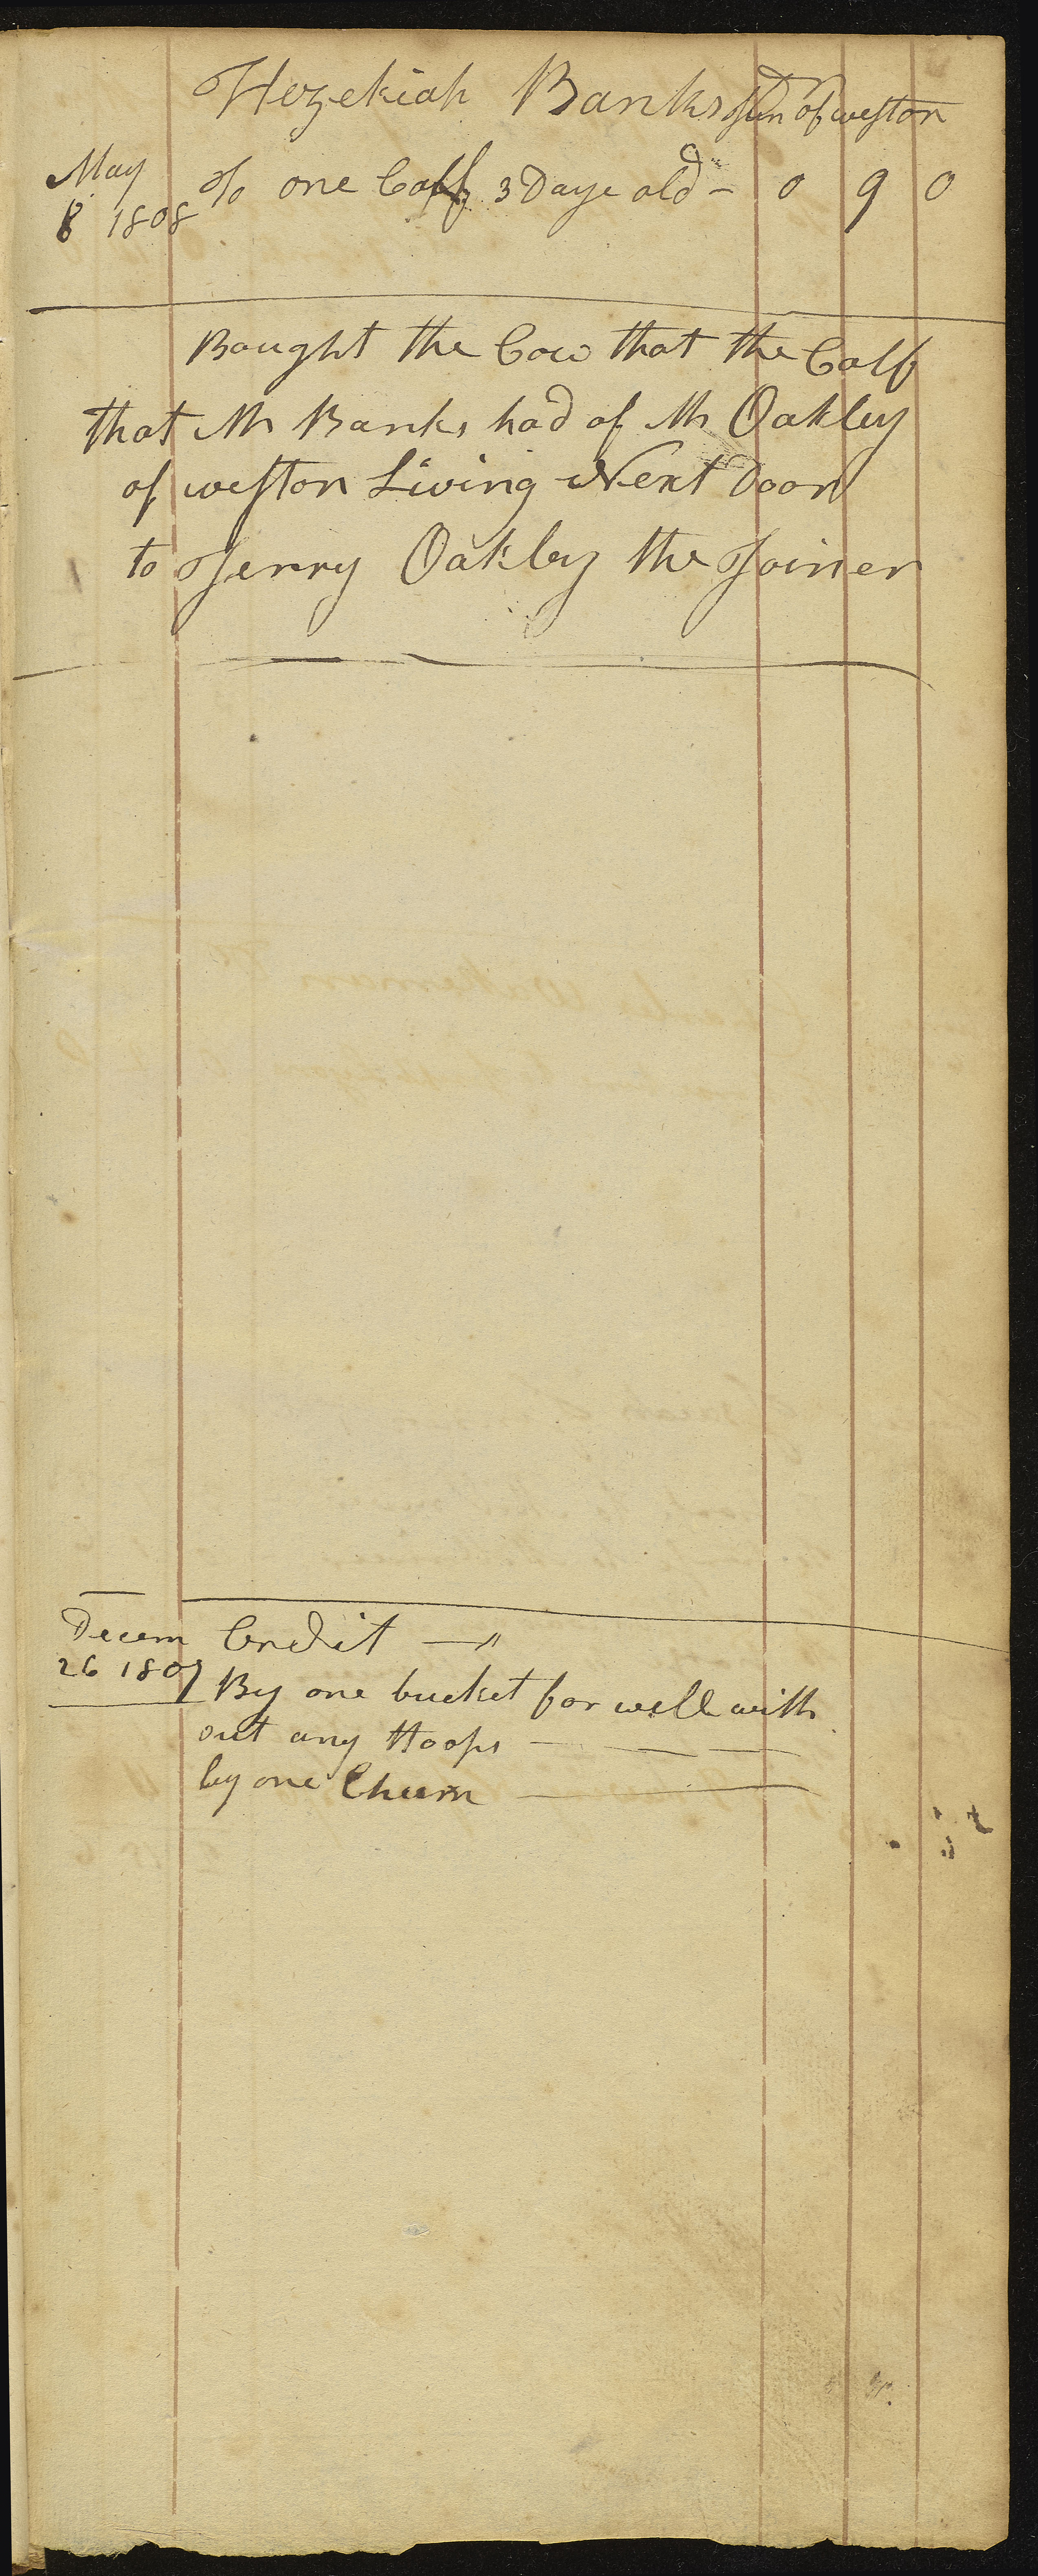 Hezekiah Banks Jun of weston Dr
May
8 1808 To one Calf 3 Daye old - 0 9 0
Bought the Cow that the Calf
that Mr Banks had of Mr Oakley
of weston Living Next Door
to Jerry Oakley the Joiner
Decem Credit
26 1807 By one bucket for well with
out any Hoops
by one Churn